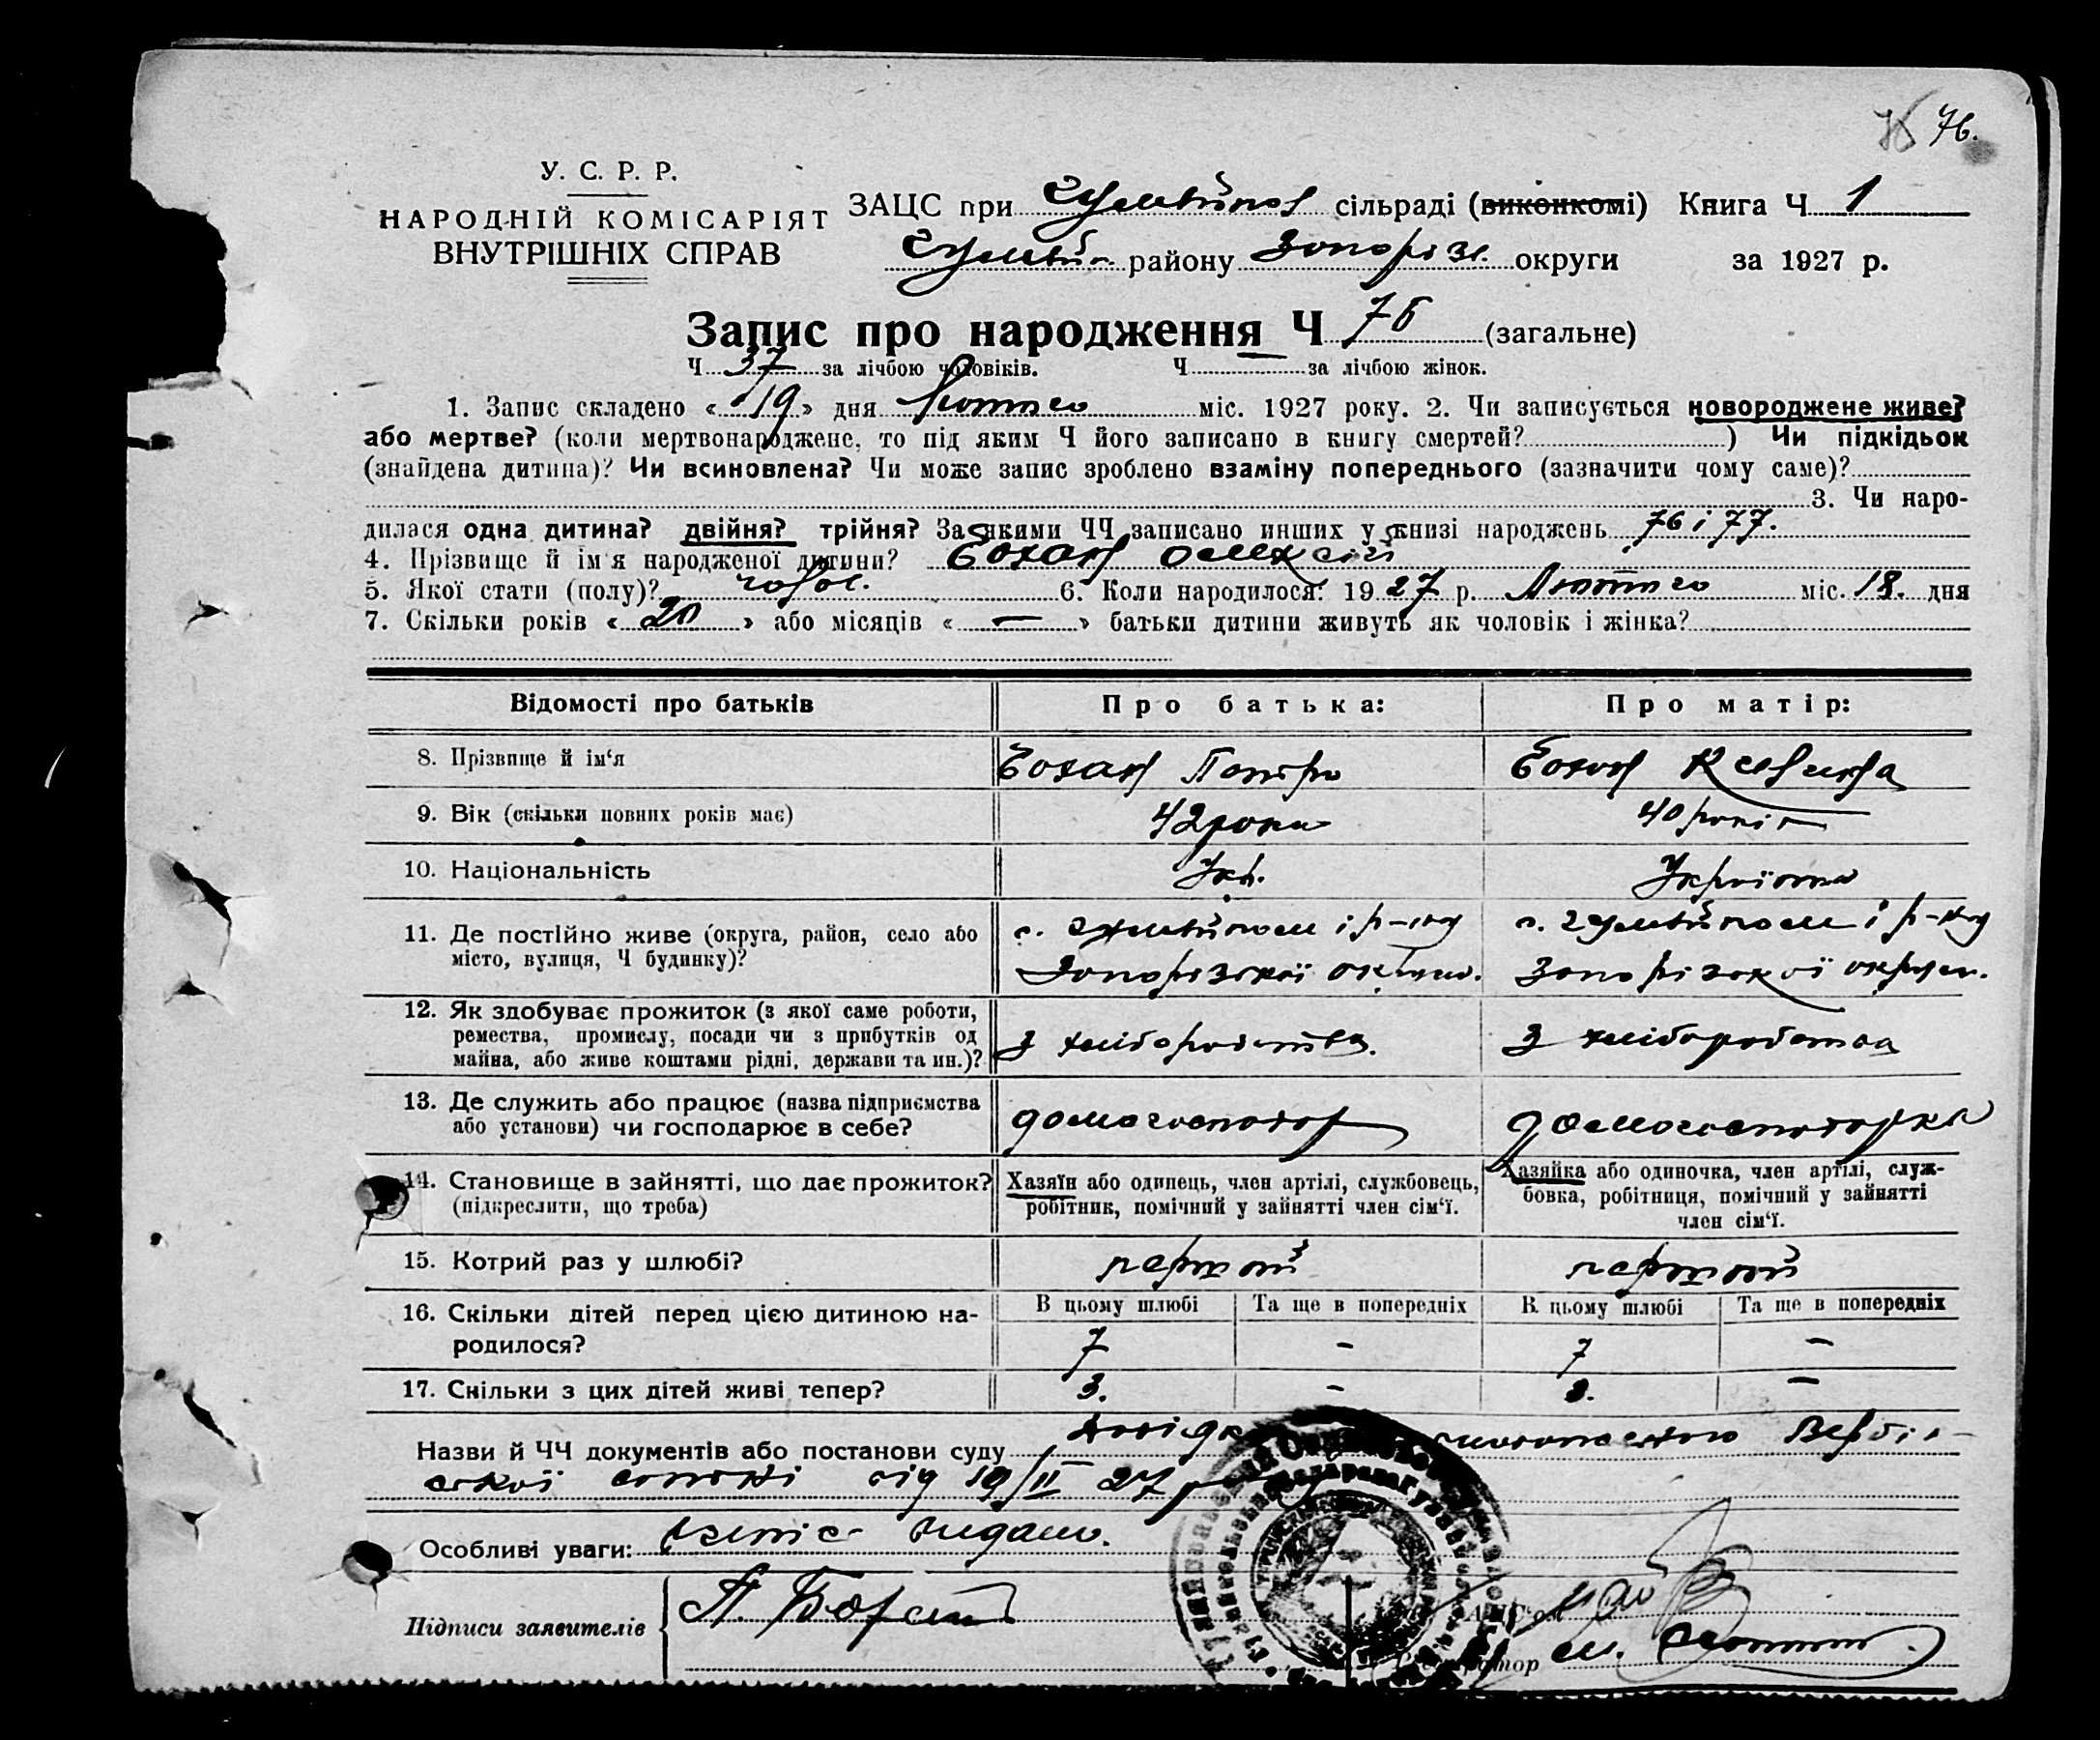 76.
У. С. Р. Р.
НАРОДНІЙ КОМІСАРІЯТ
ВНУТРІШНІХ СПРАВ
ЗАЦС при сільраді (виконкомі) Книга Ч 1
району Запоріз. округи за 1927 р.
Запис про народження Ч 76 (загальне)
Ч 37 за лічбою чоловіків. Ч за лічбою жінок.
1. Запис складено « 19 » дня Лютого міс. 1927 року. 2. Чи записується новороджене живе?
або мертве? (коли мертвонароджене, то під яким Ч його записано в книгу смертей? ) Чи підкідьок
(знайдена дитина)? Чи всиновлена? Чи може запис зроблено взаміну попереднього (зазначити чому саме)?
3. Чи наро-
дилася одна дитина? двійня? трійня? За якими ЧЧ записано инших у книзі народжень 76 і 77.
4. Прізвище й ім'я народженої дитини? Олексій
5. Якої стати (полу)? чолов. 6. Коли народилося: 1927 р. Лютого міс. 18. дня
7. Скільки років « 20 » або місяців « — » батьки дитини живуть як чоловік і жінка?
Відомості про батьків Про батька: Про матір:
8. Прізвище й ім'я Петро
9. Вік (скільки повних років має) 42 роки 40 років
10. Національність Укр. Українка
11. Де постійно живе (округа, район, село або
місто, вулиця, Ч будинку)?
с. і р-ну
Запорізької округи.
с. і р-ну
Запорізької округи.
12. Як здобуває прожиток (з якої саме роботи,
ремества, промислу, посади чи з прибутків од
майна, або живе коштами рідні, держави та ин.)?
З хліборобства. З хліборобства
13. Де служить або працює (назва підприємства
або установи) чи господарює в себе?
домогосподар домогосподарка
14. Становище в зайнятті, що дає прожиток?
(підкреслити, що треба)
Хазяїн або одинець, член артілі, службовець,
робітник, помічний у зайнятті член сім'ї.
Хазяйка або одиночка, член артілі, служ-
бовка, робітниця, помічний у зайнятті
член сім'ї.
15. Котрий раз у шлюбі? перший перший
16. Скільки дітей перед цією дитиною на-
родилося?
В цьому шлюбі Та ще в попередніх В цьому шлюбі Та ще в попередніх
7 – 7 –
17. Скільки з цих дітей живі тепер? 3. – 3. –
Назви й ЧЧ документів або постанови суду
від 19/II 27
Особливі уваги: видано.
Підписи заявителів
Реєстратор